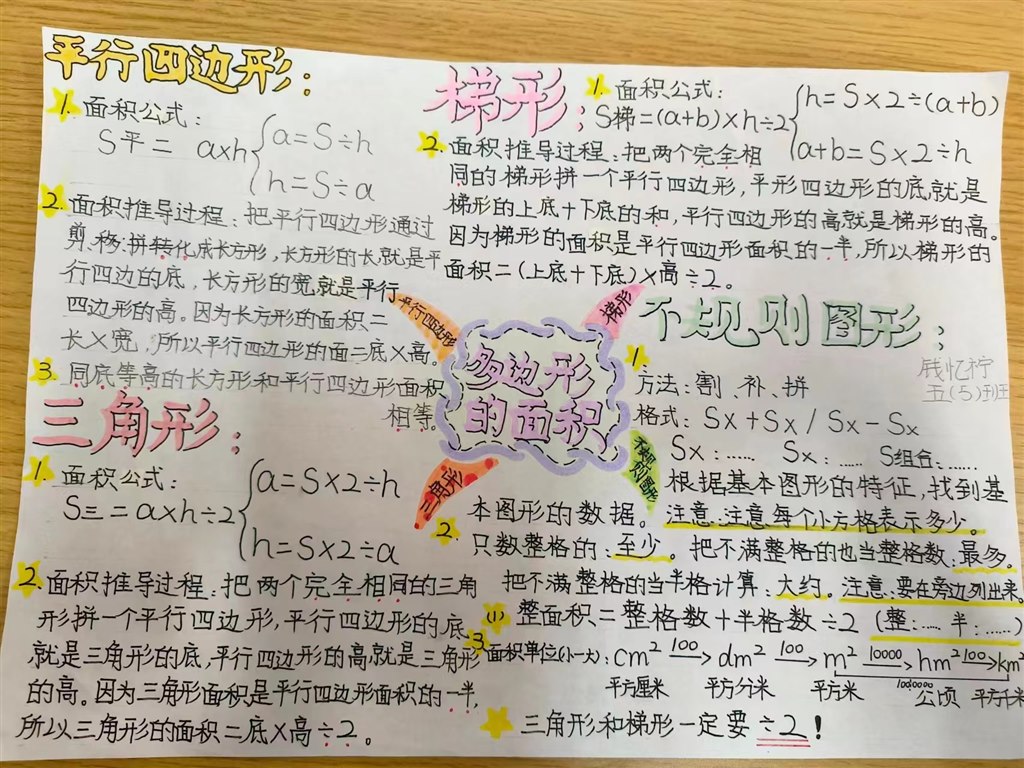 平行四边形：
1. 面积公式：
S平＝a×h
a=S÷h
h=S÷a
2. 面积推导过程：把平行四边形通过
剪、移、拼转化成长方形，长方形的长就是平
行四边的底，长方形的宽就是平行
四边形的高。因为长方形的面积＝
长×宽，所以平行四边形的面＝底×高。
3. 同底等高的长方形和平行四边形面积
相等
三角形：
1. 面积公式：
S三＝a×h÷2
a=S×2÷h
h=S×2÷a
2. 面积推导过程：把两个完全相同的三角
形拼一个平行四边形，平行四边形的底
就是三角形的底，平行四边形的高就是三角形
的高。因为三角形面积是平行四边形面积的一半，
所以三角形的面积＝底×高÷2。
梯形：
1. 面积公式：
S梯＝(a+b)×h÷2
h=S×2÷(a+b)
a+b=S×2÷h
2. 面积推导过程：把两个完全相
同的梯形拼一个平行四边形，平形四边形的底就是
梯形的上底＋下底的和，平行四边形的高就是梯形的高。
因为梯形的面积是平行四边形面积的一半，所以梯形的
面积＝(上底＋下底)×高÷2。
平行四边形
梯形
多边形
的面积
三角形
不规则图形
不规则图形：
五(5)班
1. 方法：割、补、拼
格式：Sx+Sx / Sx-Sx
Sx：…… Sx：…… S组合：……
根据基本图形的特征，找到基
本图形的数据。注意：注意每个小方格表示多少。
2. 只数整格的：至少。把不满整格的也当整格数：最多。
把不满整格的当半格计算：大约。注意：要在旁边列出来。
(1) 整面积＝整格数＋半格数÷2 (整：…… 半：……)
3. 面积单位(小-大)：cm² 100→ dm² 100→ m² 10000→ hm² 100→ km²
1000000
平方厘米 平方分米 平方米 公顷 平方千米
三角形和梯形一定要÷2！